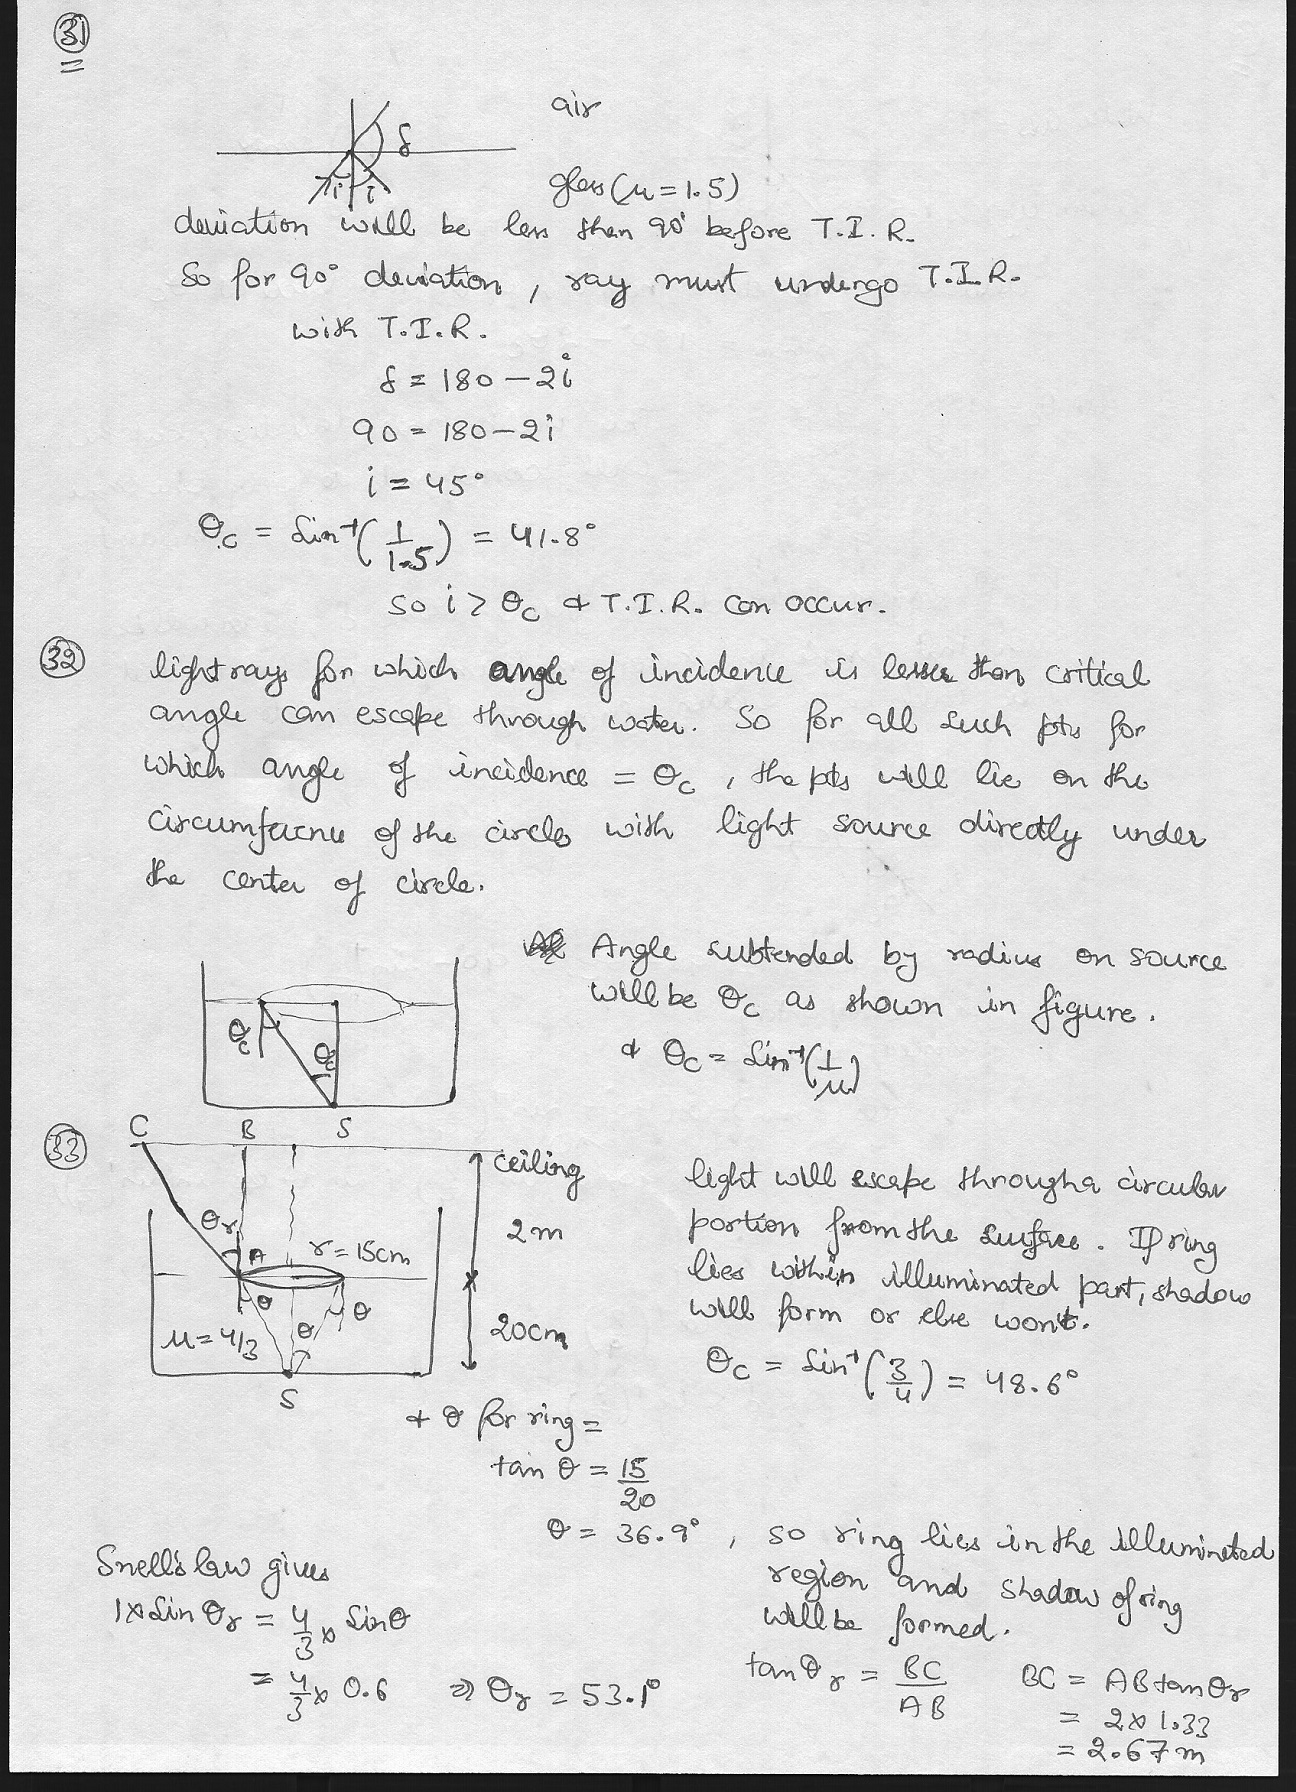 31
air
δ
i i
glass (μ = 1.5)
deviation will be less than 90° before T.I.R.
So for 90° deviation, ray must undergo T.I.R.
with T.I.R.
δ = 180 - 2i
90 = 180 - 2i
i = 45°
θc = Sin⁻¹(1/1.5) = 41.8°
So i > θc & T.I.R. can occur.
32
light rays for which angle of incidence is lesser than critical
angle can escape through water. So for all such pts for
which angle of incidence = θc, the pts will lie on the
circumference of the circle with light source directly under
the center of circle.
Angle subtended by radius on source
will be θc as shown in figure.
& θc = Sin⁻¹(1/μ)
θc θc
S
33
C B
ceiling
2m
θr A r = 15cm
θ θ θ
μ = 4/3
20cm
S
light will escape through a circular
portion from the surface. If ring
lies within illuminated part, shadow
will form or else won't.
θc = Sin⁻¹(3/4) = 48.6°
& θ for ring =
tan θ = 15/20
θ = 36.9°, so ring lies in the illuminated
region and shadow of ring
will be formed.
Snell's law gives
1 x Sin θr = 4/3 x Sinθ
= 4/3 x 0.6 ⇒ θr = 53.1°
tanθr = BC/AB
BC = AB tanθr
= 2 x 1.33
= 2.67m